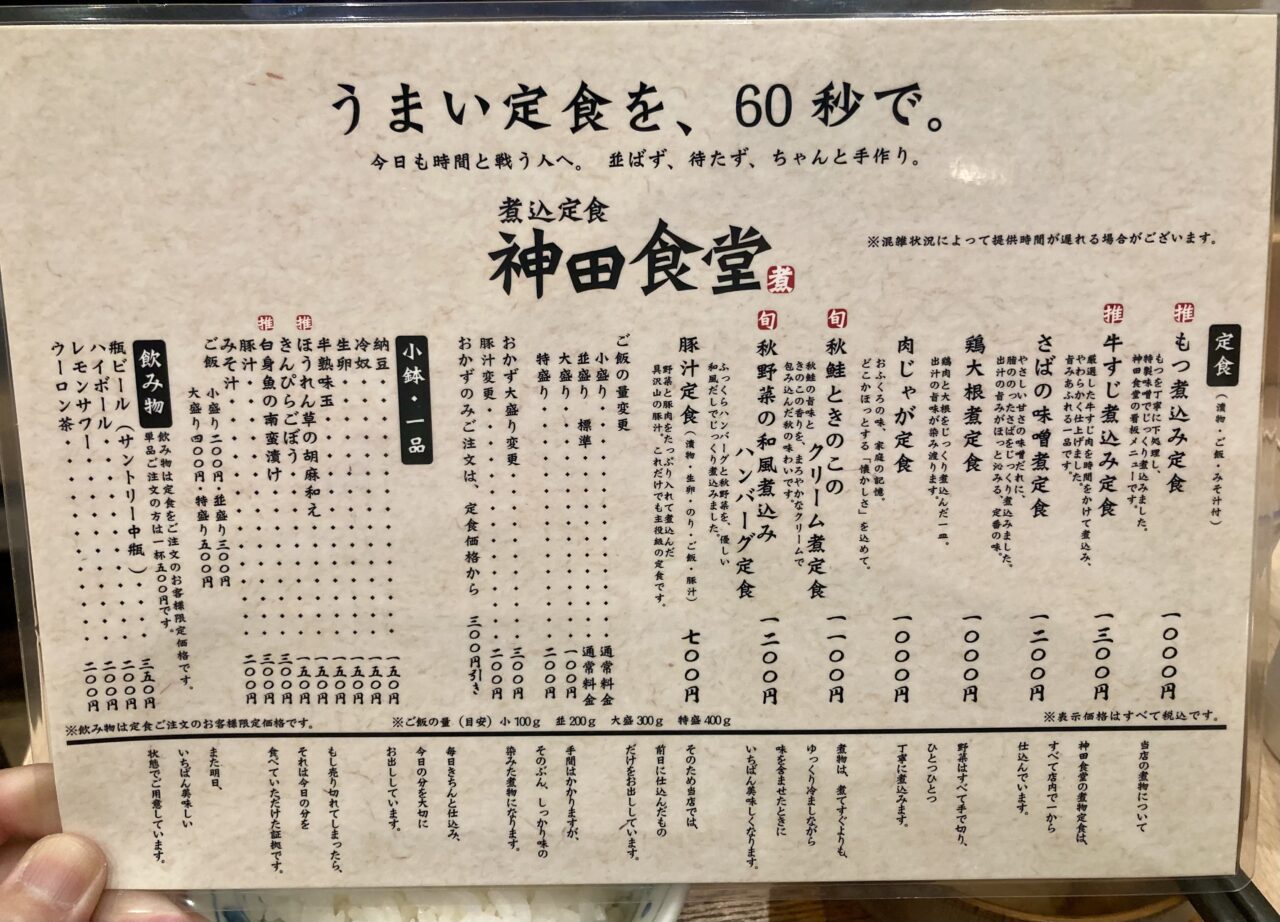 うまい定食を、60秒で。
今日も時間と戦う人へ。 並ばず、待たず、ちゃんと手作り。
煮込定食
神田食堂
煮
※混雑状況によって提供時間が遅れる場合がございます。
定食
(漬物・ご飯・みそ汁付)
推
もつ煮込み定食
一〇〇〇円
もつを丁寧に下処理し、
特製味噌でじっくり煮込みました。
神田食堂の看板メニューです。
推
牛すじ煮込み定食
一三〇〇円
厳選した牛すじ肉を時間をかけて煮込み、
やわらかく仕上げました。
旨みあふれる一品です。
さばの味噌煮定食
一二〇〇円
やさしい甘さの味噌だれに、
脂ののったさばをじっくり煮込みました。
出汁の旨みがほっと沁みる、定番の味。
鶏大根煮定食
一〇〇〇円
鶏肉と大根をじっくり煮込んだ一皿。
出汁の旨味が染み渡ります。
肉じゃが定食
一〇〇〇円
おふくろの味、家庭の記憶。
どこかほっとする「懐かしさ」を込めて。
旬
秋鮭ときのこの
クリーム煮定食
一一〇〇円
秋鮭の旨味と
きのこの香りを、まろやかなクリームで
包み込んだ秋の味わいです。
旬
秋野菜の和風煮込み
ハンバーグ定食
一二〇〇円
ふっくらハンバーグと秋野菜を、優しい
和風だしでじっくり煮込みました。
豚汁定食(漬物・生卵・のり・ご飯・豚汁)
七〇〇円
野菜と豚肉をたっぷり入れて煮込んだ
具沢山の豚汁 これだけでも主役級の定食です。
ご飯の量変更
小盛り・・・・・・・通常料金
並盛り 標準・・・・・通常料金
大盛り・・・・・・・一〇〇円
特盛り・・・・・・・二〇〇円
おかず大盛り変更・・・・・三〇〇円
豚汁変更・・・・・・・二〇〇円
おかずのみご注文は、定食価格から 三〇〇円引き
小鉢・一品
納豆・・・・・・・一五〇円
冷奴・・・・・・・一五〇円
生卵・・・・・・・一五〇円
半熟味玉・・・・・・一五〇円
推
ほうれん草の胡麻和え・・・・・一五〇円
きんぴらごぼう・・・・・三〇〇円
推
白身魚の南蛮漬け・・・・・三〇〇円
豚汁・・・・・・・二〇〇円
みそ汁・
ご飯 小盛り二〇〇円・並盛り三〇〇円
大盛り四〇〇円・特盛り五〇〇円
飲み物
飲み物は定食をご注文のお客様限定価格です。
単品ご注文の方は一杯五〇〇円です。
瓶ビール(サントリー中瓶)・・・・三五〇円
ハイボール・・・・・・・二〇〇円
レモンサワー・・・・・・・二〇〇円
ウーロン茶・・・・・・・二〇〇円
※飲み物は定食ご注文のお客様限定価格です。
※ご飯の量(目安)小100g 並200g 大盛300g 特盛400g
※表示価格はすべて税込です。
当店の煮物について
神田食堂の煮物定食は、
すべて店内で一から
仕込んでいます。
野菜はすべて手で切り、
ひとつひとつ
丁寧に煮込みます。
煮物は、煮てすぐよりも、
ゆっくり冷ましながら
味を含ませたときに
いちばん美味しくなります。
そのため当店では、
前日に仕込んだもの
だけをお出ししています。
手間はかかりますが、
そのぶん、しっかり味の
染みた煮物になります。
毎日きちんと仕込み、
今日の分を大切に
お出ししています。
もし売り切れてしまったら、
それは今日の分を
食べていただけた証拠です。
また明日、
いちばん美味しい
状態でご用意しています。